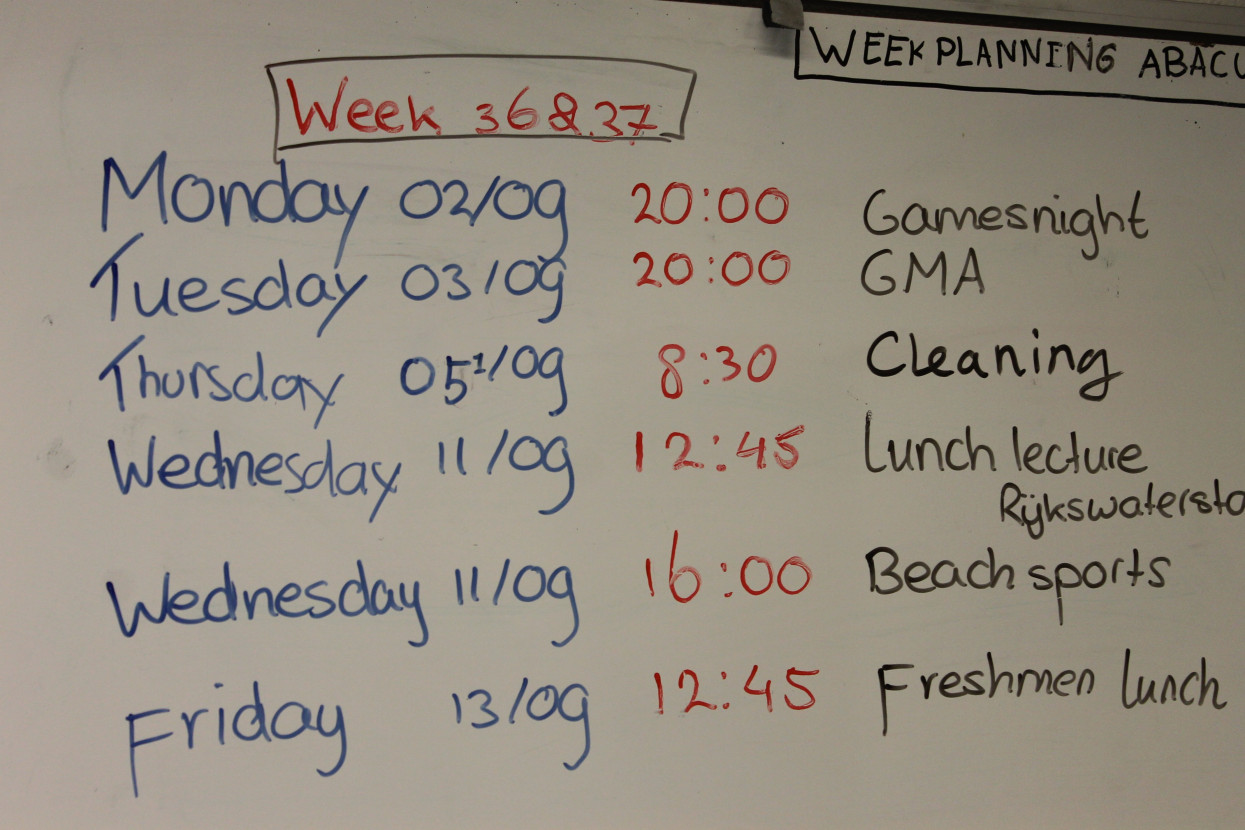 WEEKPLANNING ABACU
Week 36 & 37
Monday 02/09 20:00 Gamesnight
Tuesday 03/09 20:00 GMA
Thursday 05/09 8:30 Cleaning
Wednesday 11/09 12:45 Lunch lecture
Rijkswatersta
Wednesday 11/09 16:00 Beach sports
Friday 13/09 12:45 Freshmen lunch